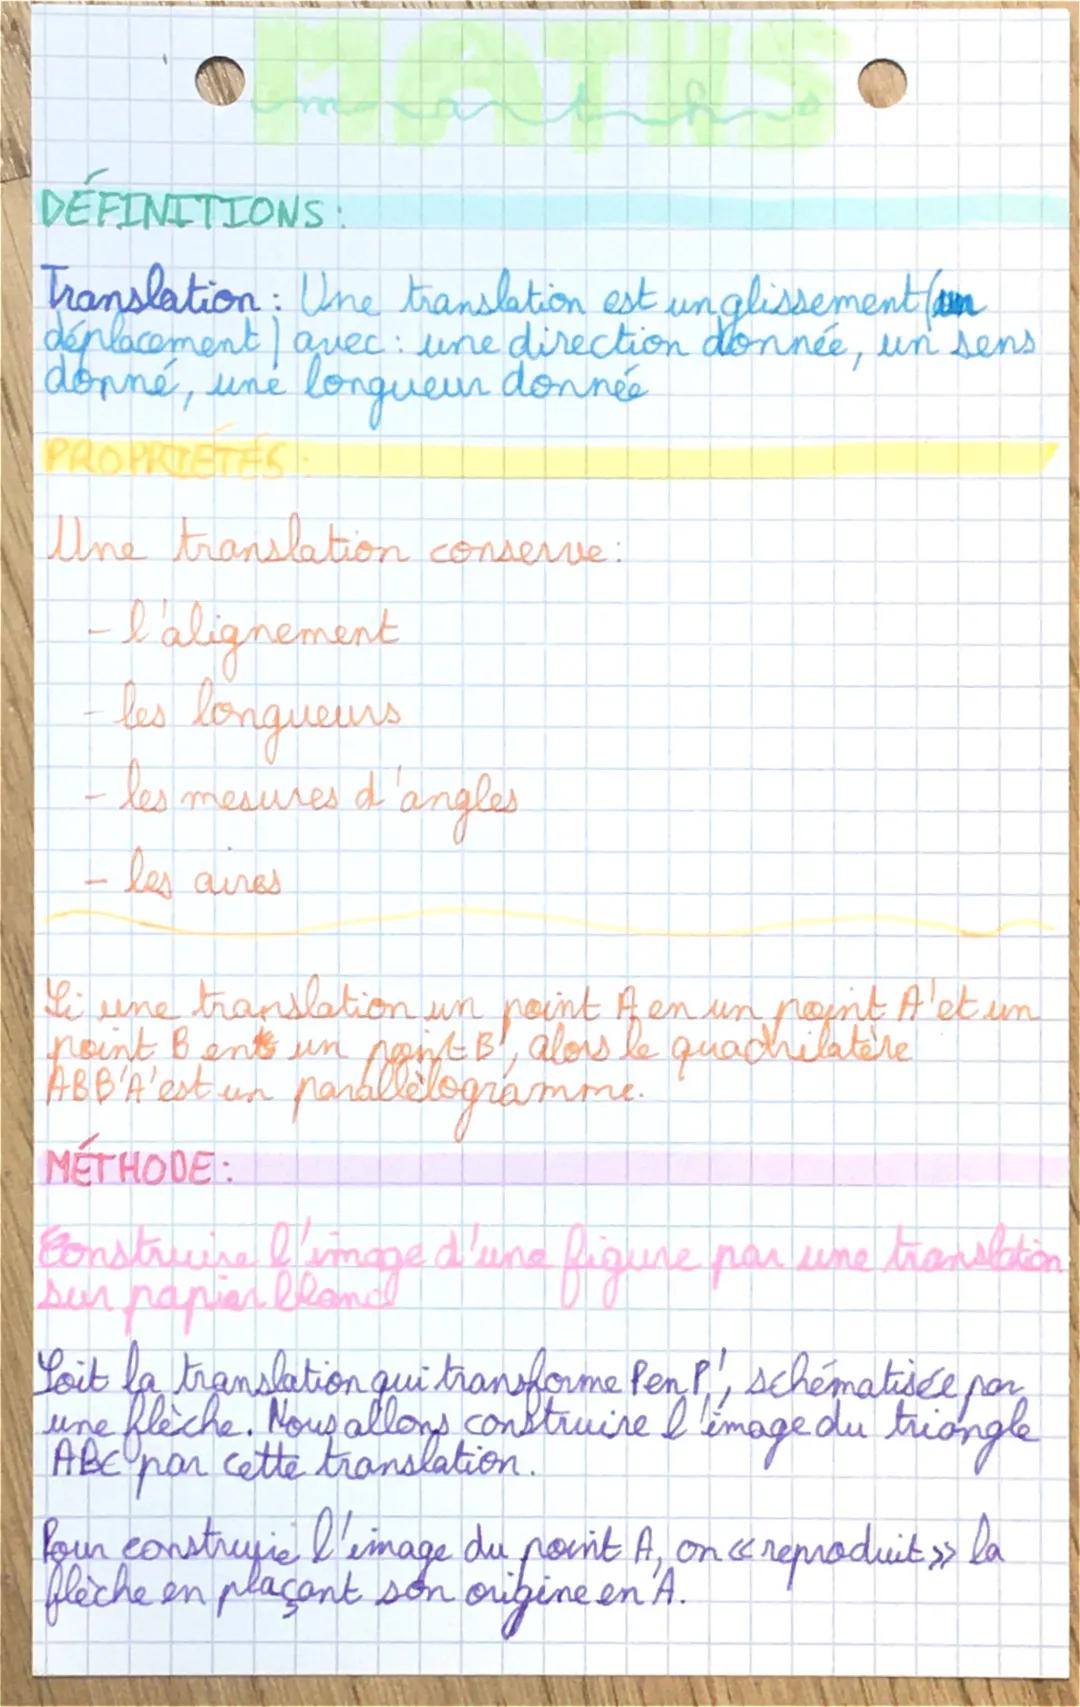 MATHS
maths
DÉFINITIONS:
Translation : Une translation est un glissement (un
déplacement) avec : une direction donnée, un sens
donné, une longueur donnée
PROPRIÉTÉS :
Une translation conserve :
- l'alignement
- les longueurs
- les mesures d'angles
- les aires
Si une translation un point A en un point A' et un
point B en un point B', alors le quadrilatère
ABB'A' est un parallèlogramme.
MÉTHODE :
Construire l'image d'une figure par une translation
sur papier blanc
Soit la translation qui transforme P en P', schématisée par
une flèche. Nous allons construire l'image du triangle
ABC par cette translation.
Pour construire l'image du point A, on «reproduit» la
flèche en plaçant son origine en A.